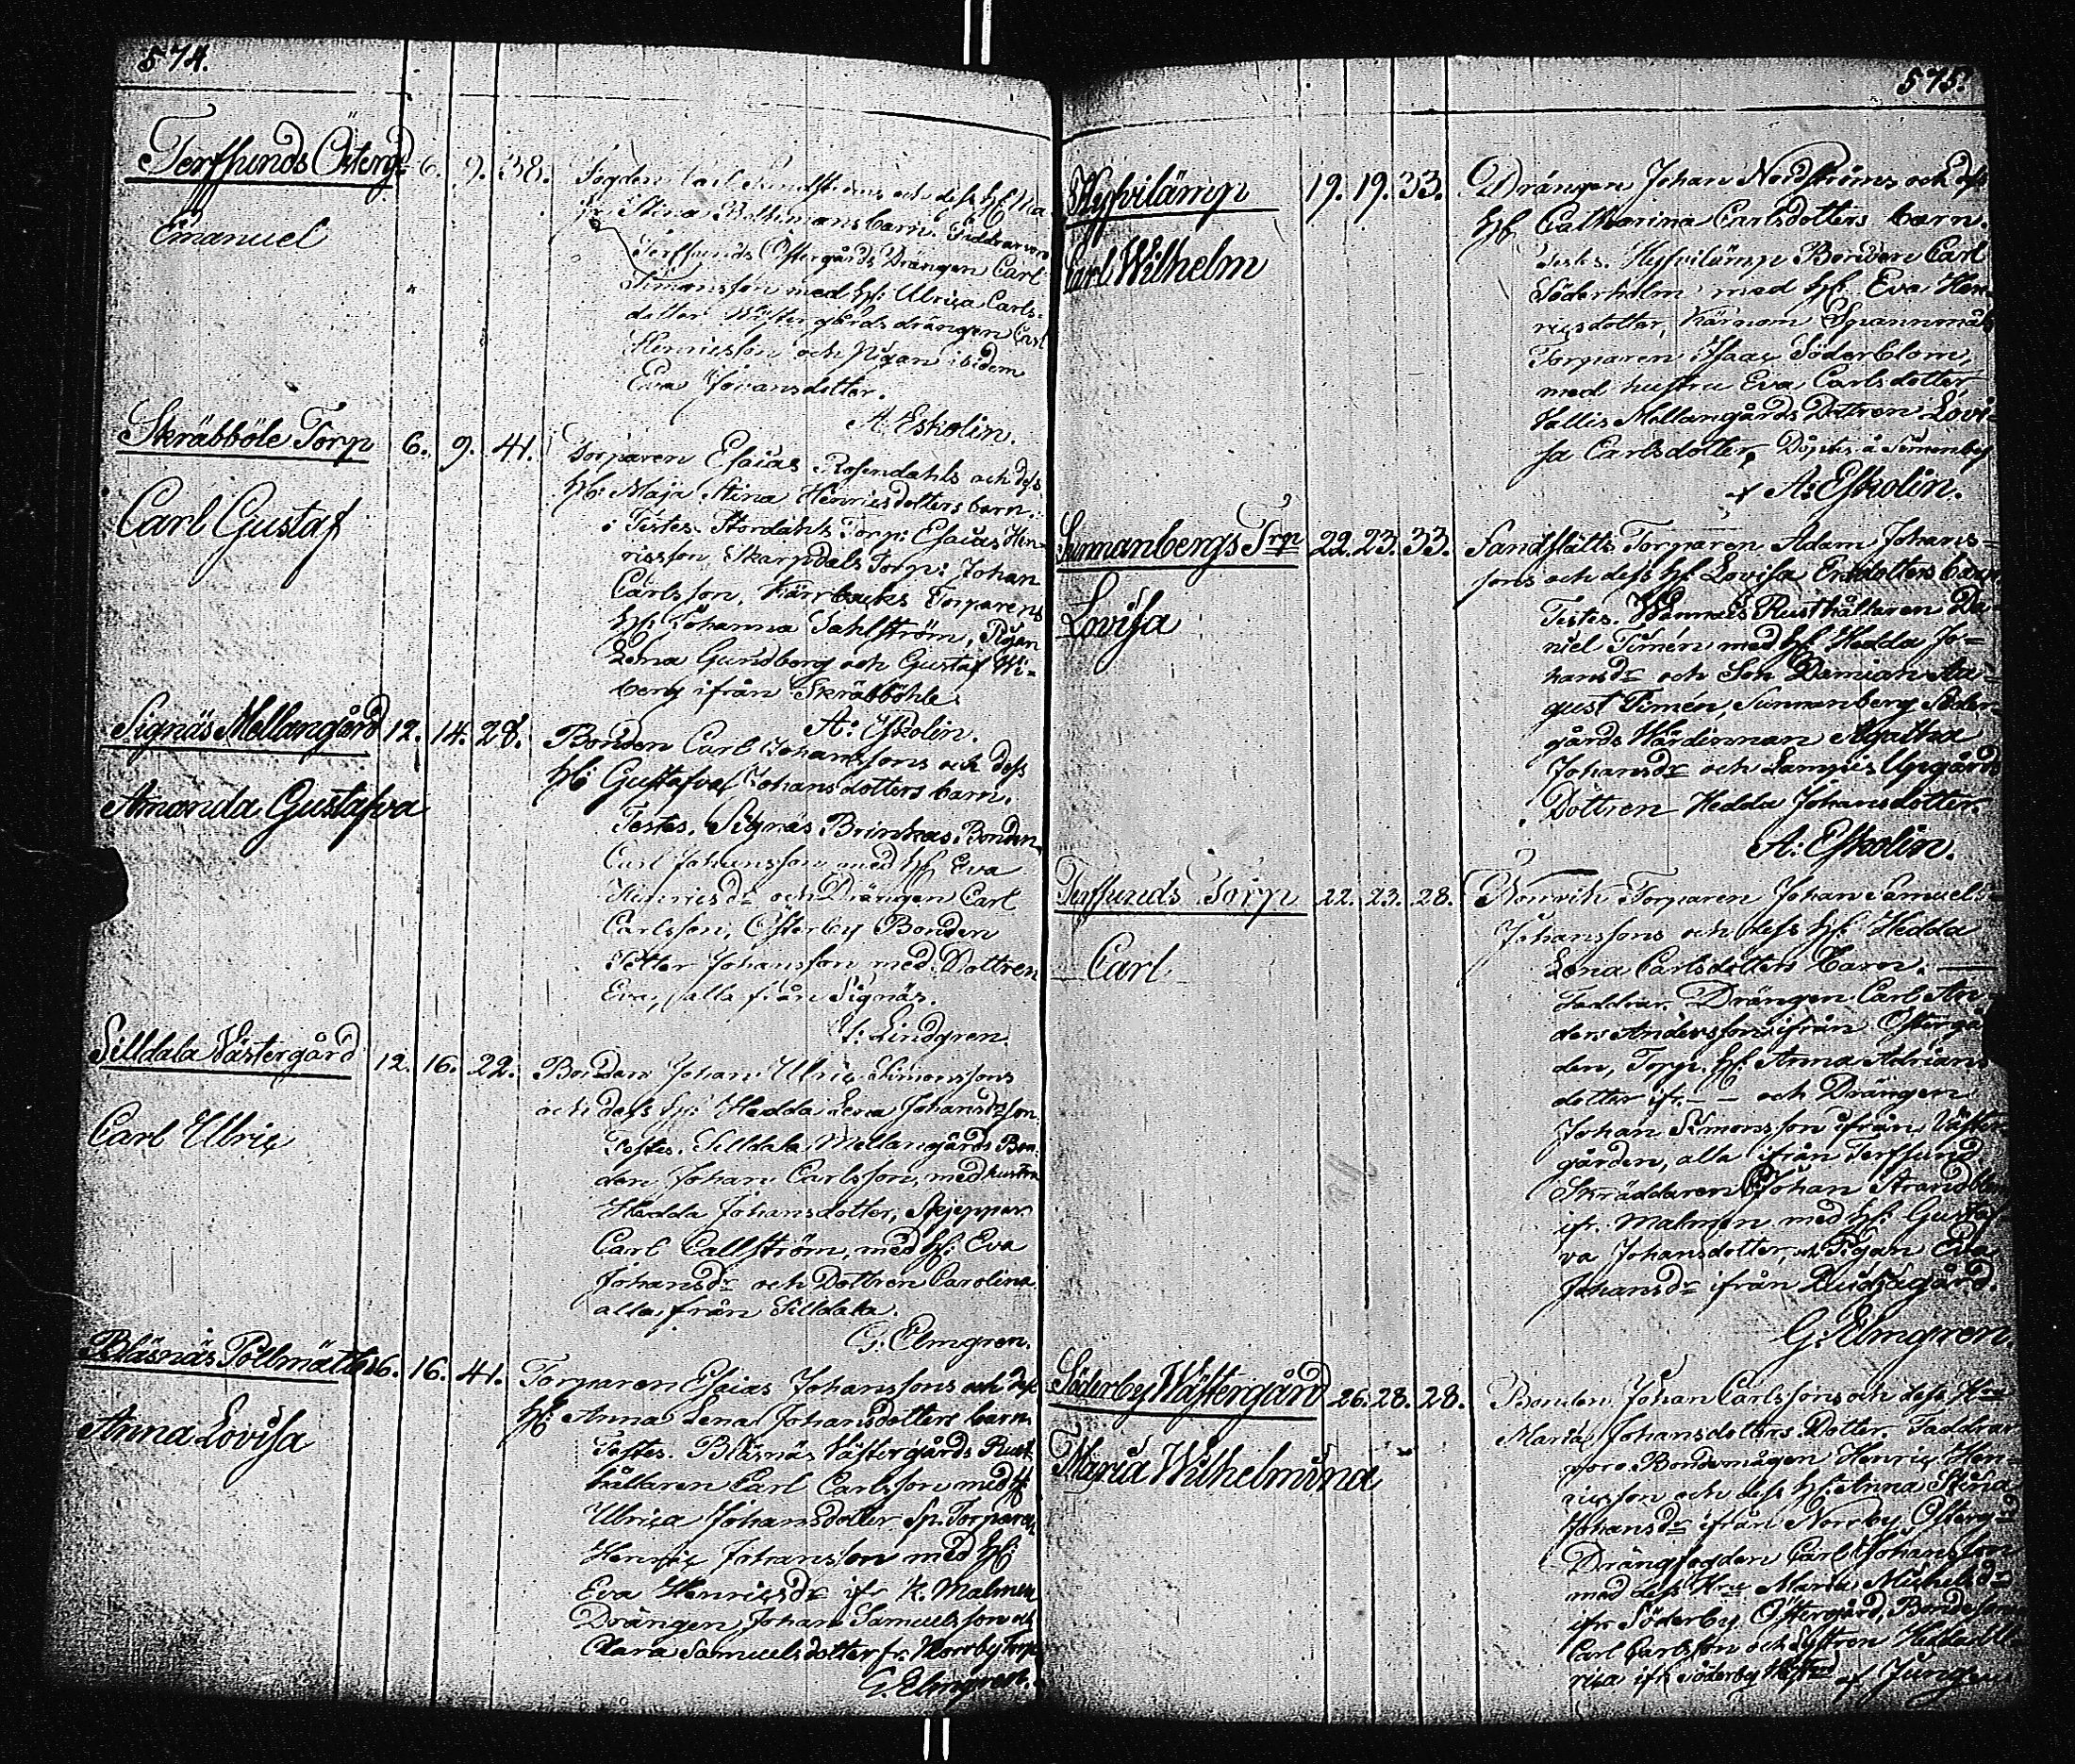 574.
Terfsunds Österg: 6. 9. 38.
Emanuel
Fogden Carl Sundströms och dess hf: Ma-
ja Stina Wilhelmans barn. Faddrar voro
Terfsunds Östergårds Drängen Carl
Simonsson med hf: Ulrica Carls-
dotter. Wästergårds drängen Carl
Henricsson och Pigan ibidem
Eva Johansdotter.
A: Eskolin.
Skräbböle Torp 6. 9. 41.
Carl Gustaf
Torparen Esaias Rosendahls och dess
hf: Maja Stina Henricsdotters barn.
Testes. Nordahls Torp: Esaias Hen-
ricsson, Skarpdals Torp: Johan
Carlsson, Kärrbacks Torparens
hf: Johanna Dahlström, Pigan
Lena Gundberg och Gustaf Wi-
berg ifrån Skräbböhle.
A: Eskolin.
Signäs Mellangård 12. 14. 28.
Amanda Gustafva
Bonden Carl Johanssons och dess
hf: Gustafva Johansdotters barn.
Testes. Signäs Brinkas Bonden
Carl Johansson med hf: Eva
Henricsdr och Drängen Carl
Carlsson, Österby Bonden
Petter Johansson med Dottren
Eva, alla från Signäs.
Lindgren.
Silldala Västergård 12. 16. 22.
Carl Ulric
Bonden Johan Ulric Simonssons
och dess hf: Hedda Lena Johansdr son.
Testes. Silldala Mellangårds Bon-
den Johan Carlsson, med hustru
Hedda Johansdotter, Skepparn
Carl Callström, med hf: Eva
Johansdr och Dottren Carolina
alla från Silldala.
G. Elmgren.
Bläsnäs Pällmätts 16. 16. 41.
Anna Lovisa
Torparen Esaias Johanssons och dess
hf: Anna Lena Johansdotters barn.
Testes. Bläsnäs Västergårds Rust-
hållaren Carl Carlsson med hf
Ulrica Johansdotter Sp. Torparen
Henric Johansson med hf:
Eva Henricsdr ifr K. Malmen
Drängen Johan Samuelsson och
Clara Samuelsdotter fr. Norrby Torp
G. Elmgren.
575.
Hyfvilämp 19. 19. 33.
Carl Wilhelm
Drängen Johan Nordströms och dess
hf Catharina Carlsdotters barn.
Testes. Hyfvilämp Bonden Carl
Söderholm med hf. Eva Hen-
ricsdotter, Kärnom Spannomåls
Torparen Isaac Söderblom,
med hustru Eva Carlsdotter
Vallis Mellangårds Dottren Lovi-
sa Carlsdotter, Döptes å Sunnanberg
af A: Eskolin.
Sunnanbergs Trp 22. 23. 33.
Lovisa
Sandslätts Torparen Adam Johans-
sons och dess hf. Lovisa Ersdotters barn
Testes. Wännäs Rusthållaren Da-
niel Timén med hf Hedda Jo-
hansdr och Son Damian Au-
gust Timén, Sunnanberg Söder-
gårds Wärdinnan Agatha
Johansdr och Lampis Uppgårds
Dottren Hedda Johansdotter.
A: Eskolin.
Terfsunds Torp 22. 23. 28.
Carl
Norrvik Torparen Johan Samuels
Johanssons och dess hf: Hedda
Lena Carlsdotters barn.
Faddrar. Drängen Carl An-
ders Andersson ifrån Östergår-
den, Torp. hf. Anna Adrians-
dotter ifr. — — och Drängen
Johan Simonsson ifrån Väster-
gården, alla ifrån Terfsund
Skräddaren Johan Strandblom
ifr. Malmen med hf: Gustaf-
va Johansdotter, och Pigan Eva
Johansdr ifrån
G. Elmgren.
Söderby Wästergård 26. 28. 28.
Maria Wilhelmina
Bonden Johan Carlssons och dess Hru
Maria Johansdotters Dotter. Faddrar
voro Bondemågen Henric Hen-
ricsson och dess hf: Anna Stina
Johansdr ifrån Norrby Österg-d
Drängfogden Carl Johansson
med dess Hru Maria Michelsdr
ifr. Söderby Östergård, Bondesonen
Carl Carlsson och Systren Hedda Ul-
rica ifr Söderby af